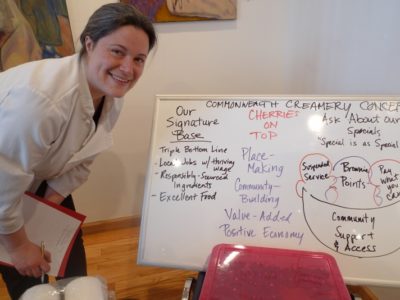 COMMONWEALTH CREAMERY CONCEPT
Our
Signature
Base
Triple Bottom Line
- Local Jobs w/ thriving
wage
- Responsibly-Sourced
Ingredients
- Excellent Food
CHERRIES
ON
TOP
Place-
Making
Community-
Building
Value-Added
Positive Economy
Ask About our
Specials
"Special is as Special
Suspended
Service
Brownie
Points
Pay
What
you
Can
Community
Support
& Access